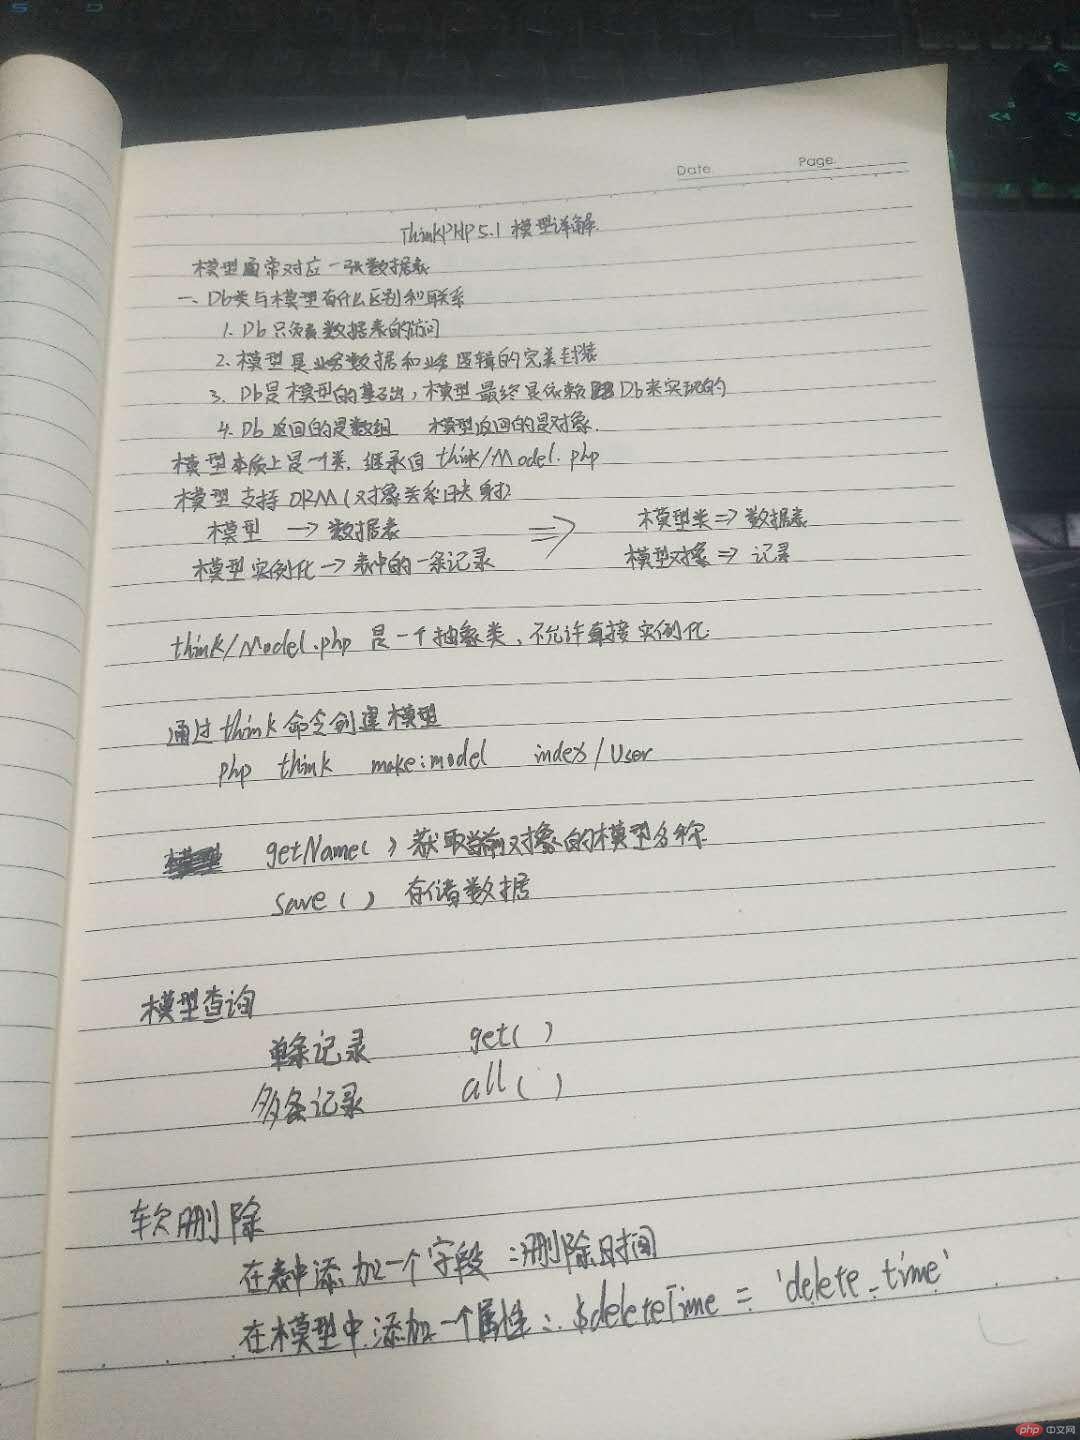 Date
Page
ThinkPHP5.1 模型详解
模型通常对应一张数据表
一、Db类与模型有什么区别和联系
1. Db只负责数据表的访问
2. 模型是业务数据和业务逻辑的完美封装
3. Db是模型的基础, 模型最终是依赖Db来实现的
4. Db返回的是数组 模型返回的是对象.
模型本质上是一个类, 继承自 think/Model.php
模型支持ORM(对象关系映射)
模型 → 数据表 ⇒ 模型类 ⇒ 数据表
模型实例化 → 表中的一条记录 模型对象 ⇒ 记录
think/Model.php 是一个抽象类, 不允许直接实例化
通过think命令创建模型
php think make:model index/User
getName() 获取当前对象的模型名称
save() 存储数据
模型查询
单条记录 get()
多条记录 all()
软删除
在表中添加一个字段:删除时间
在模型中添加一个属性: $deleteTime = 'delete_time'
php 中文网